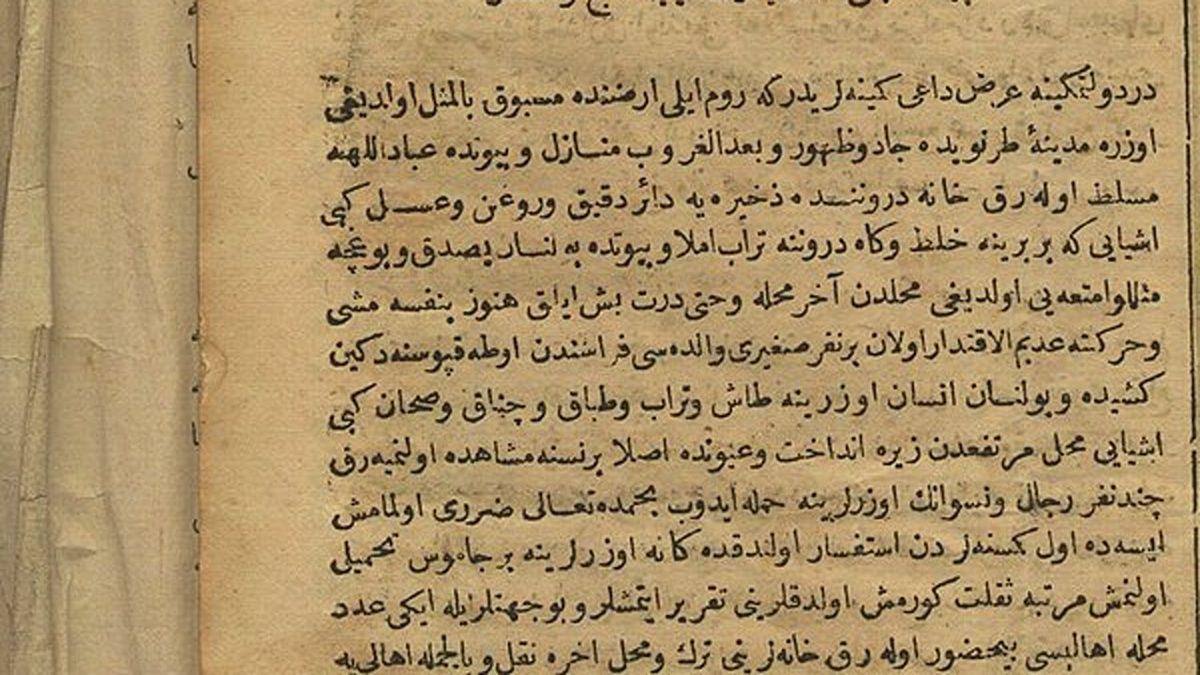 دردولتمكینه عرض داعی كمینه لریدركه روم ایلی ارضنده مسبوق بالمثل اولدیغی
اوزره مدینهٔ طرنویده جادو ظهور و بعد الغروب منازل و بیوتده عباد اللهه
مسلط اوله رق خانه دروننده ذخیره یه دائر دقیق وروغن وعسل كبی
اشیایی كه بر برینه خلط وكاه دروننه تراب املا و بیوتده بولنان یصدق و بوغچه
مثللو امتعه یی اولدیغی محلدن آخر محله وحتی درت بش ایلق هنوز بنفسه مشی
وحركته عدیم الاقتدار اولان برنفر صغیری والده سی فراشندن اوطه قپوسنه دكین
كشیده و بولنان انسان اوزرینه طاش وتراب وطباق و چناق وصحان كبی
اشیایی محل مرتفعدن زیره انداخت وعیونده اصلا برنسنه مشاهده اولنمیه رق
چند نفر رجال ونسوانك اوزرلرینه حمله ایدوب بحمده تعالی ضرری اولمامش
ایسه ده اول كسنه لردن استفسار اولندقده كانه اوزرلرینه بر جاموس تحمیلی
اولنمش مرتبه ثقلت كورمش اولدقلرینی تقریر ایتمشلر و بوجهتلریله ایكی عدد
محله اهالیسی بیحضور اوله رق خانه لرینی ترك ومحل اخره نقل و بالجمله اهالی یه